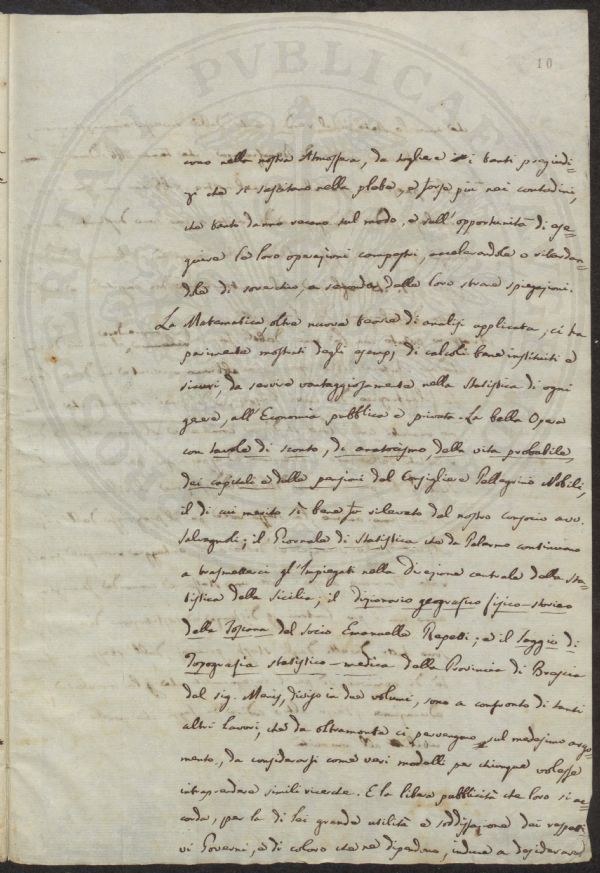 10
cono nella nostra Atmosfera, da togliere i tanti pregiudi=
zj che si suscitano nella plebe, e forse più nei contadini,
che tanto danno recano sul modo, e sull'opportunità di ese=
guire le loro operazioni campestri, accelerandole o ritardan=
dole di soverchio, a seconda delle loro strane spiegazioni.
La Matematica oltre nuove teorie di analisi applicata, ci ha
parimente mostrati degli esempj di calcoli bene instituiti e
sicuri, da servire vantaggiosamente nella Statistica di ogni
genere, all'Economia pubblica e privata. La bella Opera
con tavole di sconto, di anatocismo, della vita probabile,
dei capitali e delle pensioni del Consigliere Pellegrino Nobili,
il di cui merito sì bene fu rilevato dal nostro consocio avv.
Salvagnoli; il Giornale di Statistica che da Palermo continuano
a trasmetterci gl'Impiegati nella Direzione centrale della Sta=
tistica della Sicilia; il dizionario geografico fisico-storico
della Toscana del Socio Emanuelle Repetti; e il Saggio di
Topografia statistico-medica della Provincia di Brescia
del sig. Menis, diviso in due volumi, sono a confronto di tanti
altri lavori, che da oltremonte ci pervengono sul medesimo argo=
mento, da considerarsi come veri modelli per chiunque volesse
intraprendere simili ricerche. E la libera pubblicità che loro si ac=
corda, per la di lei grande utilità e soddisfazione dei rispetti
vi Governi, e di coloro che ne dipendono, induce a desiderare